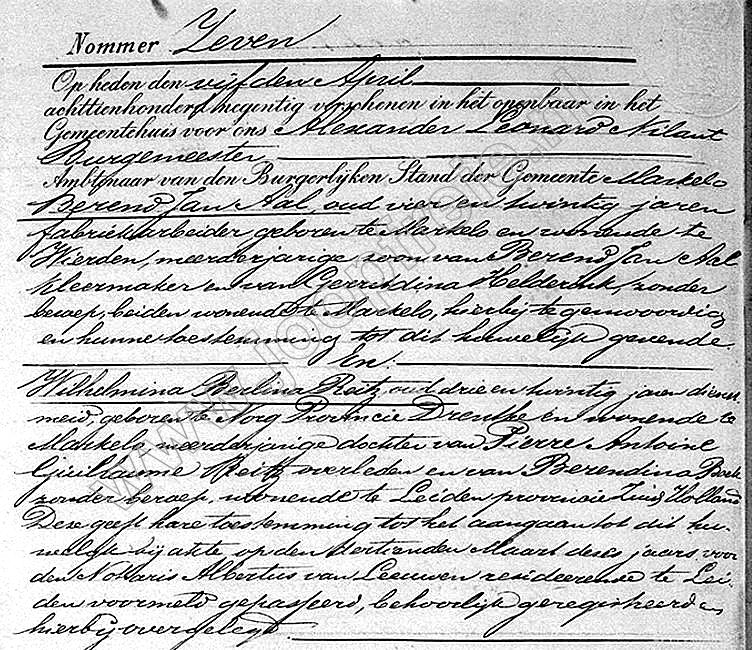 Nommer Zeven
Op heden den vijfden April
achttienhonderd negentig verschenen in het openbaar in het
Gemeentehuis voor ons Alexander Leonard Nilant
Burgemeester
Ambtenaar van den Burgerlijken Stand der Gemeente Markelo
Berend Jan Aal, oud vier en twintig jaren
fabriekarbeider geboren te Markelo en wonende te
Wierden, meerderjarige zoon van Berend Jan Aal
kleermaker en van Gerrendina Helderink, zonder
beroep, beiden wonende te Markelo, hierbij tegenwoordig
en hunne toestemming tot dit huwelijk gevende.
En.
Wilhelmina Paulina Reitz, oud drie en twintig jaren dienst
meid, geboren te Norg Provincie Drenthe en wonende te
Markelo, meerderjarige dochter van Pierre Antoine
Guillaume Reitz overleden en van Berendina
zonder beroep, wonende te Leiden provincie Zuid Holland
Deze geeft hare toestemming tot het aangaan tot dit hu-
welijk bij akte, op den dertienden Maart dezes jaars voor
den Notaris Albertus van Leeuwen resideerende te Lei-
den voormeld gepasseerd, behoorlijk geregistreerd en
hierbij overgelegd.
www.Jooptreie.nl